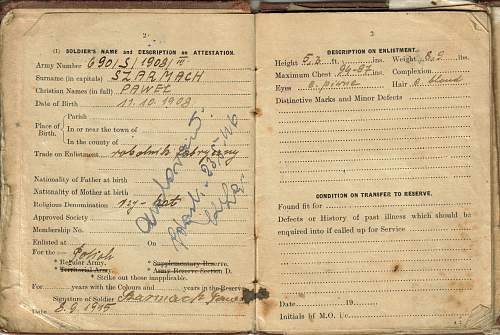 2
(1) SOLDIER'S NAME and DESCRIPTION on ATTESTATION.
Army Number 690/S/1908/III
Surname (in capitals) SZARMACH
Christian Names (in full) PAWEŁ
Date of Birth 11.10.1908
Place of Birth.
Parish
In or near the town of
In the county of
Trade on Enlistment robotnik fabryczny
Nationality of Father at birth
Nationality of Mother at birth
Religious Denomination rzy-kat
Approved Society
Membership No.
Enlisted at On
For the Polish
* Regular Army. * Supplementary Reserve.
* Territorial Army. * Army Reserve Section D.
* Strike out those inapplicable.
For years with the Colours and years in the Reserve.
Signature of Soldier Szarmach Paweł
Date 8.9.1945
3
DESCRIPTION ON ENLISTMENT.
Height 5.3 ft. ins. Weight lbs.
Maximum Chest ins. Complexion
Eyes piwne Hair c blond
Distinctive Marks and Minor Defects
CONDITION ON TRANSFER TO RESERVE.
Found fit for
Defects or History of past illness which should be
enquired into if called up for Service
Date 19
Initials of M.O. i/c